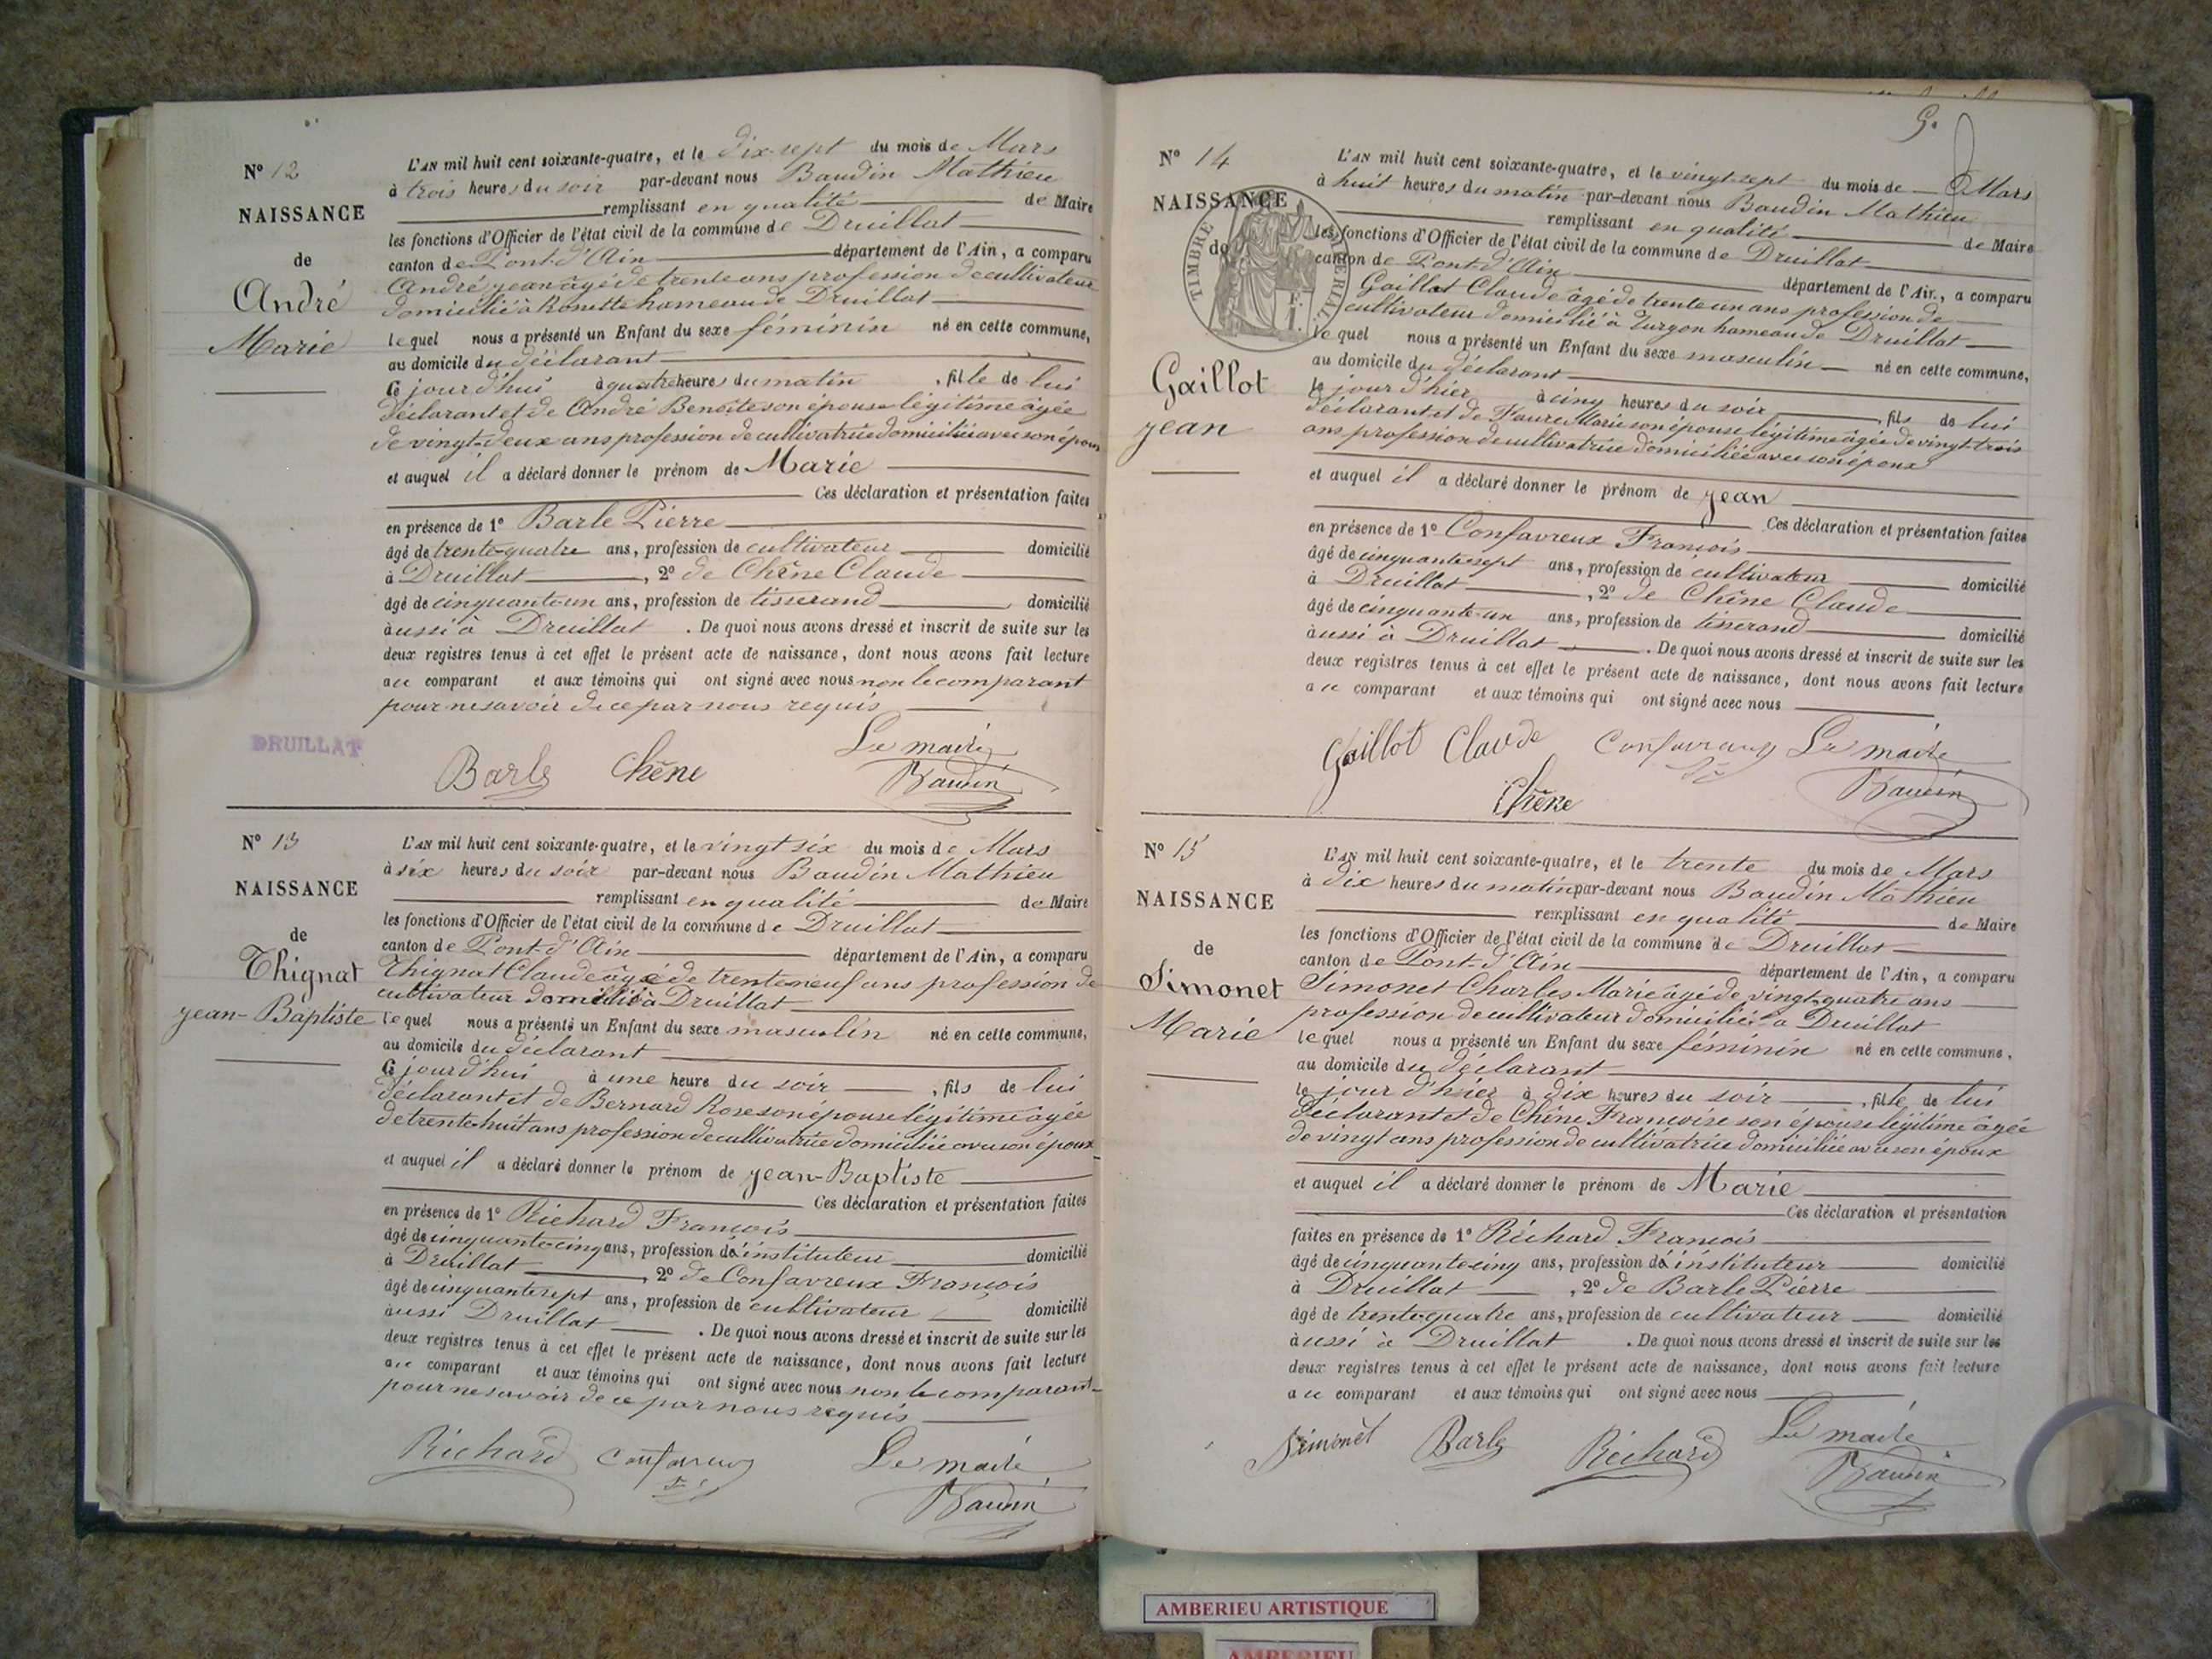 N° 12
NAISSANCE
de
André
Marie
L'AN mil huit cent soixante-quatre, et le dix-sept du mois de Mars
à trois heures du soir par-devant nous Baudin Mathieu
remplissant en qualité de Maire
les fonctions d'Officier de l'état civil de la commune de Druillat
canton de Pont-d'Ain département de l'Ain, a comparu
André jean âgé de trente ans profession de cultivateur
domicilié à Ronette hameau de Druillat
lequel nous a présenté un Enfant du sexe féminin né en cette commune,
au domicile du déclarant
Ce jourd'hui à quatre heures du matin, fille de lui
déclarant et de André Benoite son épouse légitime âgée
de vingt-deux ans profession de cultivatrice domiciliée avec son époux
et auquel il a déclaré donner le prénom de Marie
Ces déclaration et présentation faites
en présence de 1° Barle Pierre
âgé de trente-quatre ans, profession de cultivateur domicilié
à Druillat, 2° de Chêne Claude
âgé de cinquante-un ans, profession de tisserand domicilié
aussi à Druillat. De quoi nous avons dressé et inscrit de suite sur les
deux registres tenus à cet effet le présent acte de naissance, dont nous avons fait lecture
au comparant et aux témoins qui ont signé avec nous non le comparant
pour ne savoir de ce par nous requis
DRUILLAT
Barle Chêne Le maire
Baudin
N° 13
NAISSANCE
de
Thignat
jean-Baptiste
L'AN mil huit cent soixante-quatre, et le vingt six du mois de Mars
à six heures du soir par-devant nous Baudin Mathieu
remplissant en qualité de Maire
les fonctions d'Officier de l'état civil de la commune de Druillat
canton de Pont-d'Ain département de l'Ain, a comparu
Thignat Claude âgé de trente neuf ans profession de
cultivateur domicilié à Druillat
lequel nous a présenté un Enfant du sexe masculin né en cette commune,
au domicile du déclarant
Ce jourd'hui à une heure du soir, fils de lui
déclarant et de Bernard Rose son épouse légitime âgée
de trente-huit ans profession de cultivatrice domiciliée avec son époux
et auquel il a déclaré donner le prénom de jean-Baptiste
Ces déclaration et présentation faites
en présence de 1° Richard François
âgé de cinquante-cinq ans, profession d'instituteur domicilié
à Druillat, 2° de Confavreux François
âgé de cinquante sept ans, profession de cultivateur domicilié
aussi Druillat. De quoi nous avons dressé et inscrit de suite sur les
deux registres tenus à cet effet le présent acte de naissance, dont nous avons fait lecture
au comparant et aux témoins qui ont signé avec nous non le comparant
pour ne savoir de ce par nous requis
Richard Confavreux Le maire
Baudin
9.
N° 14
NAISSANCE
de
TIMBRE
Gaillot
jean
L'AN mil huit cent soixante-quatre, et le vingt-sept du mois de Mars
à huit heures du matin par-devant nous Baudin Mathieu
remplissant en qualité de Maire
les fonctions d'Officier de l'état civil de la commune de Druillat
canton de Pont-d'Ain département de l'Ain, a comparu
Gaillot Claude âgé de trente un ans profession de
cultivateur domicilié à Turgon hameau de Druillat
lequel nous a présenté un Enfant du sexe masculin né en cette commune,
au domicile du déclarant
le jour d'hier à cinq heures du soir, fils de lui
déclarant et de Faure Marie son épouse légitime âgée de vingt-trois
ans profession de cultivatrice domiciliée avec son époux
et auquel il a déclaré donner le prénom de jean
Ces déclaration et présentation faites
en présence de 1° Confavreux François
âgé de cinquante sept ans, profession de cultivateur domicilié
à Druillat, 2° de Chêne Claude
âgé de cinquante-un ans, profession de tisserand domicilié
aussi à Druillat. De quoi nous avons dressé et inscrit de suite sur les
deux registres tenus à cet effet le présent acte de naissance, dont nous avons fait lecture
au comparant et aux témoins qui ont signé avec nous
Gaillot Claude Confavreux Le maire
Chêne Baudin
N° 15
NAISSANCE
de
Simonet
Marie
L'AN mil huit cent soixante-quatre, et le trente du mois de Mars
à dix heures du matin par-devant nous Baudin Mathieu
remplissant en qualité de Maire
les fonctions d'Officier de l'état civil de la commune de Druillat
canton de Pont-d'Ain département de l'Ain, a comparu
Simonet Charles Marie âgé de vingt-quatre ans
profession de cultivateur domicilié à Druillat
lequel nous a présenté un Enfant du sexe féminin né en cette commune,
au domicile du déclarant
le jour d'hier à dix heures du soir, fille de lui
déclarant et de Chêne Françoise son épouse légitime âgée
de vingt ans profession de cultivatrice domiciliée avec son époux
et auquel il a déclaré donner le prénom de Marie
Ces déclaration et présentation
faites en présence de 1° Richard François
âgé de cinquante-cinq ans, profession d'instituteur domicilié
à Druillat, 2° de Barle Pierre
âgé de trente-quatre ans, profession de cultivateur domicilié
aussi à Druillat. De quoi nous avons dressé et inscrit de suite sur les
deux registres tenus à cet effet le présent acte de naissance, dont nous avons fait lecture
au comparant et aux témoins qui ont signé avec nous
Simonet Barle Richard Le maire
Baudin
AMBERIEU ARTISTIQUE
AMBERIEU